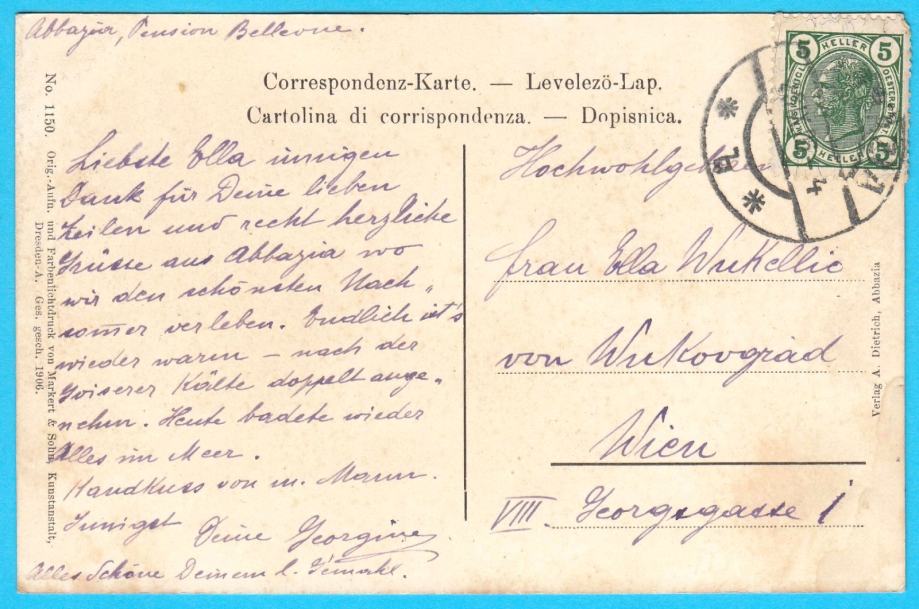 Abbazia, Pension Bellevue.
Correspondenz-Karte. — Levelezö-Lap.
Cartolina di corrispondenza. — Dopisnica.
No. 1150. Orig.-Aufn. und Farbenlichtdruck von Markert & Sohn, Kunstanstalt,
Dresden-A. Ges. gesch. 1906.
Liebste Ella innigen
Dank für Deine lieben
Zeilen und recht herzliche
Grüsse aus Abbazia wo
wir den schönsten Nach„
somer verleben. Endlich ist's
wieder warm – nach der
Kälte doppelt ange„
nehm. Heute badete wieder
Alles im Meer.
Handkuss von m. Mann.
Innigst Deine Georgine
Alles Schöne Deinem l. Gemahl.
5 HELLER 5
5 HELLER 5
Hochwohlgeboren
Frau Ella Wukellic
von Wukovgrad
Wien
VIII. Georgsgasse 1
Verlag A. Dietrich, Abbazia